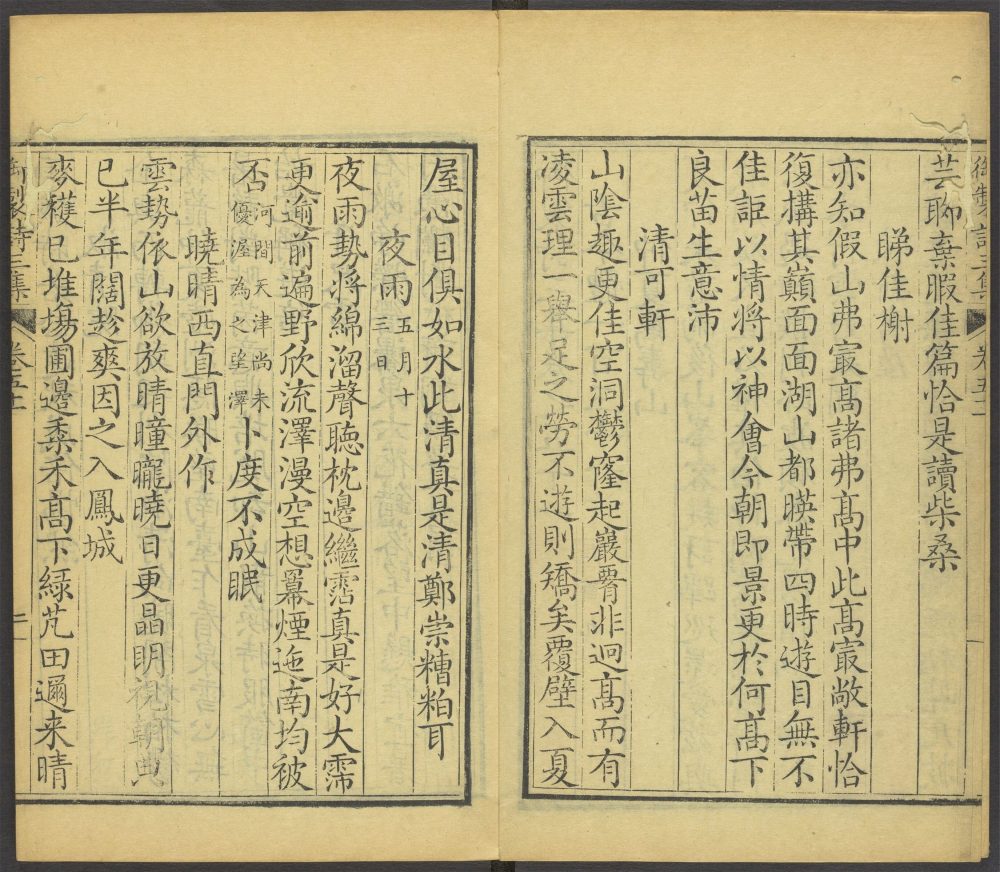 御製詩三集 卷五十二
芸聊棄暇佳篇恰是讀柴桑
睇佳榭
亦知假山弗㝡髙諸弗髙中此髙㝡敞軒恰
復構其巔面面湖山都暎帶四時遊目無不
佳詎以情將以神會今朝即景更於何髙下
良苗生意沛
清可軒
山陰趣更佳空洞鬱窿起巖𦡀非迥髙而有
凌雲理一舉足之勞不遊則矯矣覆壁入夏
屋心目俱如水此清真是清鄭崇糟粕耳
夜雨 五月十三日
夜雨勢將綿溜聲聴枕邊繼霑真是好大霈
更逾前遍野欣流澤漫空想羃煙迤南均被
否 河間天津尚未優渥為之望澤 卜度不成眠
曉晴西直門外作
雲勢依山欲放晴曈曨曉日更晶明視朝
巳半年闊趁爽因之入鳳城
麥穫巳堆塲圃邊黍禾髙下緑芃田邇来晴
御製詩三集 卷五十二 二